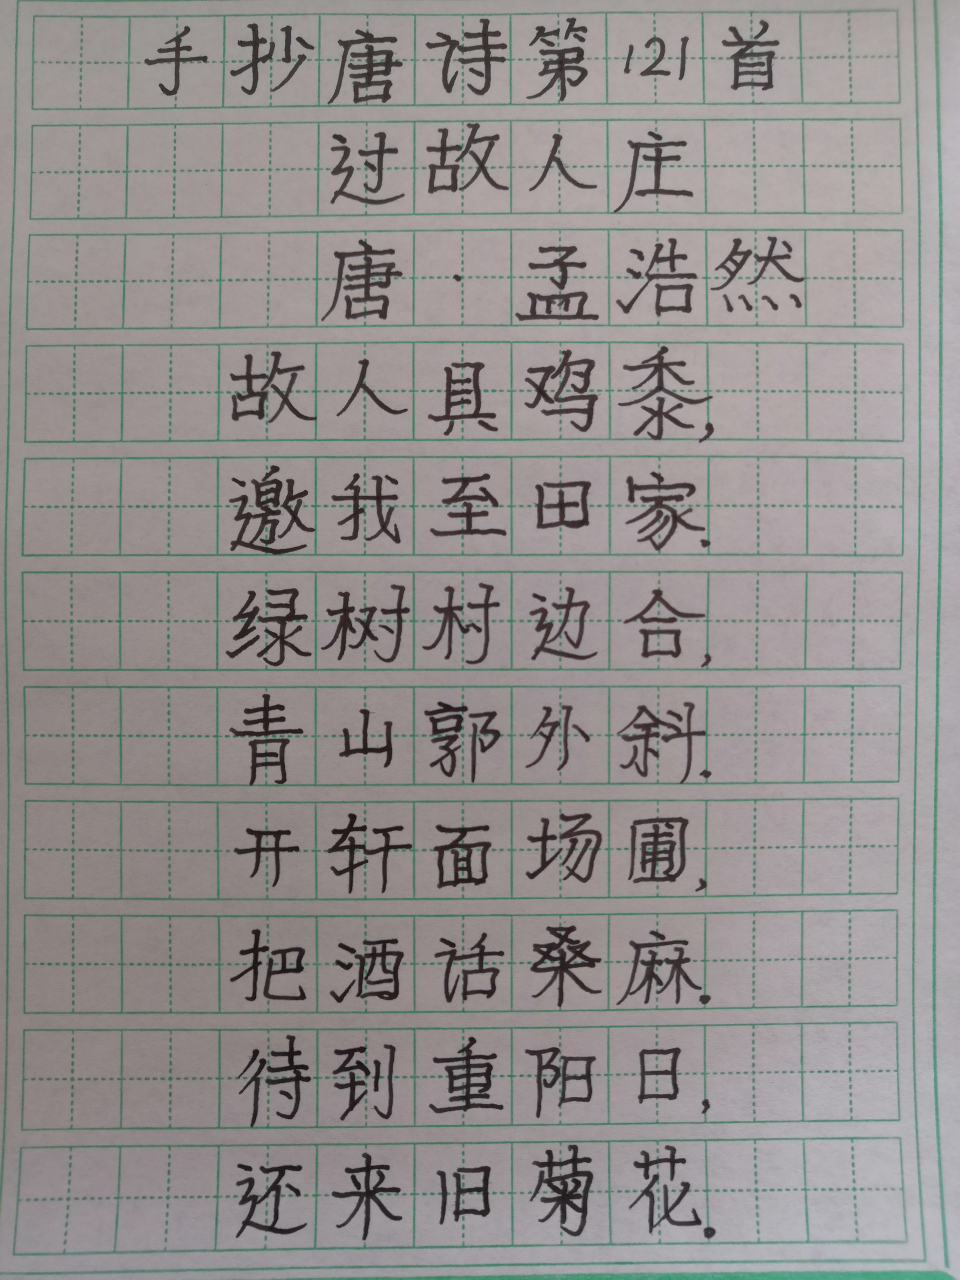 手抄唐诗第121首
过故人庄
唐·孟浩然
故人具鸡黍,
邀我至田家.
绿树村边合,
青山郭外斜.
开轩面场圃,
把酒话桑麻.
待到重阳日,
还来旧菊花.